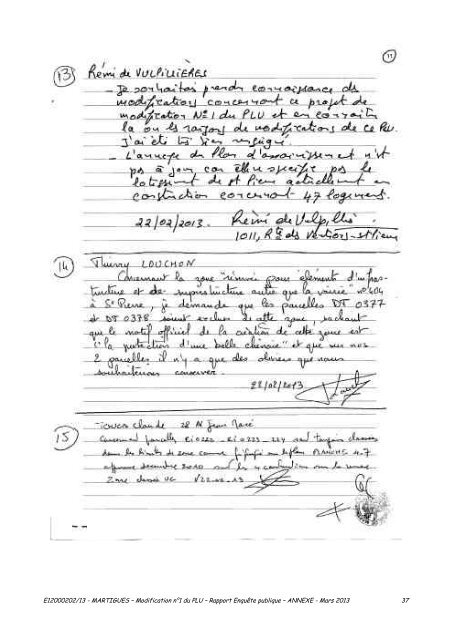 11
13 Rémi de VULPILLIERES
- Je souhaitais prendre connaissance des
modifications concernant ce projet de
modification N°1 du PLU et en connaitre
la ou les raisons de modifications de ce PLU.
J'ai été très bien renseigné.
- L'annexe du Plan d'assainissement n'est
pas à jour car elle ne spécifie pas le
lotissement de St Pierre actuellement en
construction concernant 47 logements.
22/02/2013. Rémi de Vulpillières
1011, Rte des St Pierre
14 Thierry LOUCHON
Concernant la zone "réservée pour éléments d'infras-
tructure et de superstructure autre que la voirie" n°404
à St Pierre, je demande que les parcelles DT 0377
et DT 0378 soient exclues de cette zone, sachant
que le motif officiel de la création de cette zone est
"la protection d'une belle chênaie" et que sur nos
2 parcelles il n'y a que des oliviers que nous
souhaiterions conserver.
22/02/2013
15 Claude 28 Jean
Concernant parcelles toujours classées
dans les limites de zone comme le plan PLANCHE 4.7
approuvé décembre 2010
Zone classée UC 22.02.13
E12000202/13 - MARTIGUES – Modification n°1 du PLU – Rapport Enquête publique – ANNEXE - Mars 2013 37